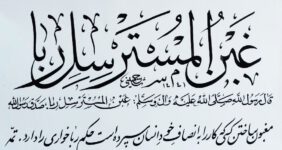 غبن المسترسل ربا
قال رسول الله صلی الله علیه و آله وسلم: غبن المسترسل ربا. صدق رسول الله
مغبون ساختن کسی که کار را به انصاف خود انسان سپرده است حکم رباخواری را دارد.